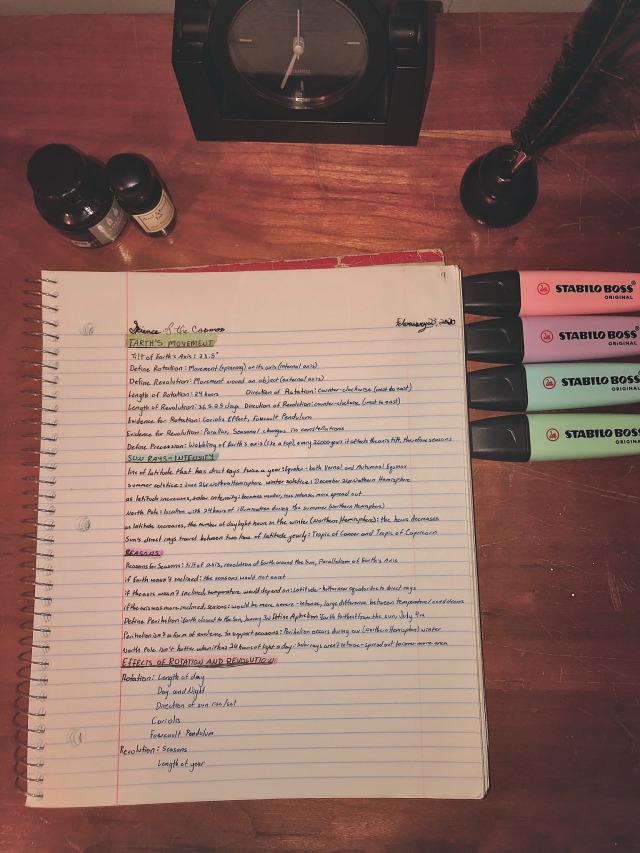 Science of the Cosmos
February 23, 2020
EARTH'S MOVEMENT
Tilt of Earth's Axis: 23.5°
Define Rotation: Movement (spinning) on its axis (internal axis)
Define Revolution: Movement around an object (external axis)
Length of Rotation: 24 hours Direction of Rotation: Counter-clockwise (west to east)
Length of Revolution: 365.25 days Direction of Revolution: counter-clockwise (west to east)
Evidence for Rotation: Coriolis Effect, Foucault Pendulum
Evidence for Revolution: Parallax, Seasonal changes in constellations
Define Precession: Wobbling of Earth's axis (like a top), every 26000 years it affects the axis tilt, therefore seasons
SUN RAYS - INTENSITY
line of latitude that has direct rays twice a year: Equator - both Vernal and Autumnal Equinox
summer solstice: June 21st Northern Hemisphere winter solstice: December 21st Northern Hemisphere
as latitude increases, solar intensity: becomes weaker, less intense, more spread out
North Pole: location with 24 hours of illumination during the summer (Northern Hemisphere)
as latitude increases, the number of daylight hours in the winter (Northern Hemisphere): the hours decreases
Sun's direct rays travel between two lines of latitude yearly: Tropic of Cancer and Tropic of Capricorn
REASONS
Reasons for Seasons: tilt of axis, revolution of Earth around the Sun, Parallelism of Earth's Axis
if Earth wasn't inclined: the seasons would not exist
if the axis wasn't inclined, temperature would depend on: latitude - hotter near equator due to direct rays
if the axis was more inclined, seasons: would be more severe - intense, large difference between temperature/conditions
Define Perihelion: Earth closest to the Sun, January 3rd Define Aphelion: Earth farthest from the sun, July 4th
Perihelion isn't a form of evidence to support seasons: Perihelion occurs during our (Northern Hemisphere) winter
North Pole isn't hotter when it has 24 hours of light a day: solar rays aren't intense - spread out to cover more area
EFFECTS OF ROTATION AND REVOLUTION
Rotation: Length of day
Day and Night
Direction of sun rise/set
Coriolis
Foucault Pendulum
Revolution: Seasons
Length of year
STABILO BOSS
ORIGINAL
STABILO BOSS
ORIGINAL
STABILO BOSS
ORIGINAL
STABILO BOSS
ORIGINAL